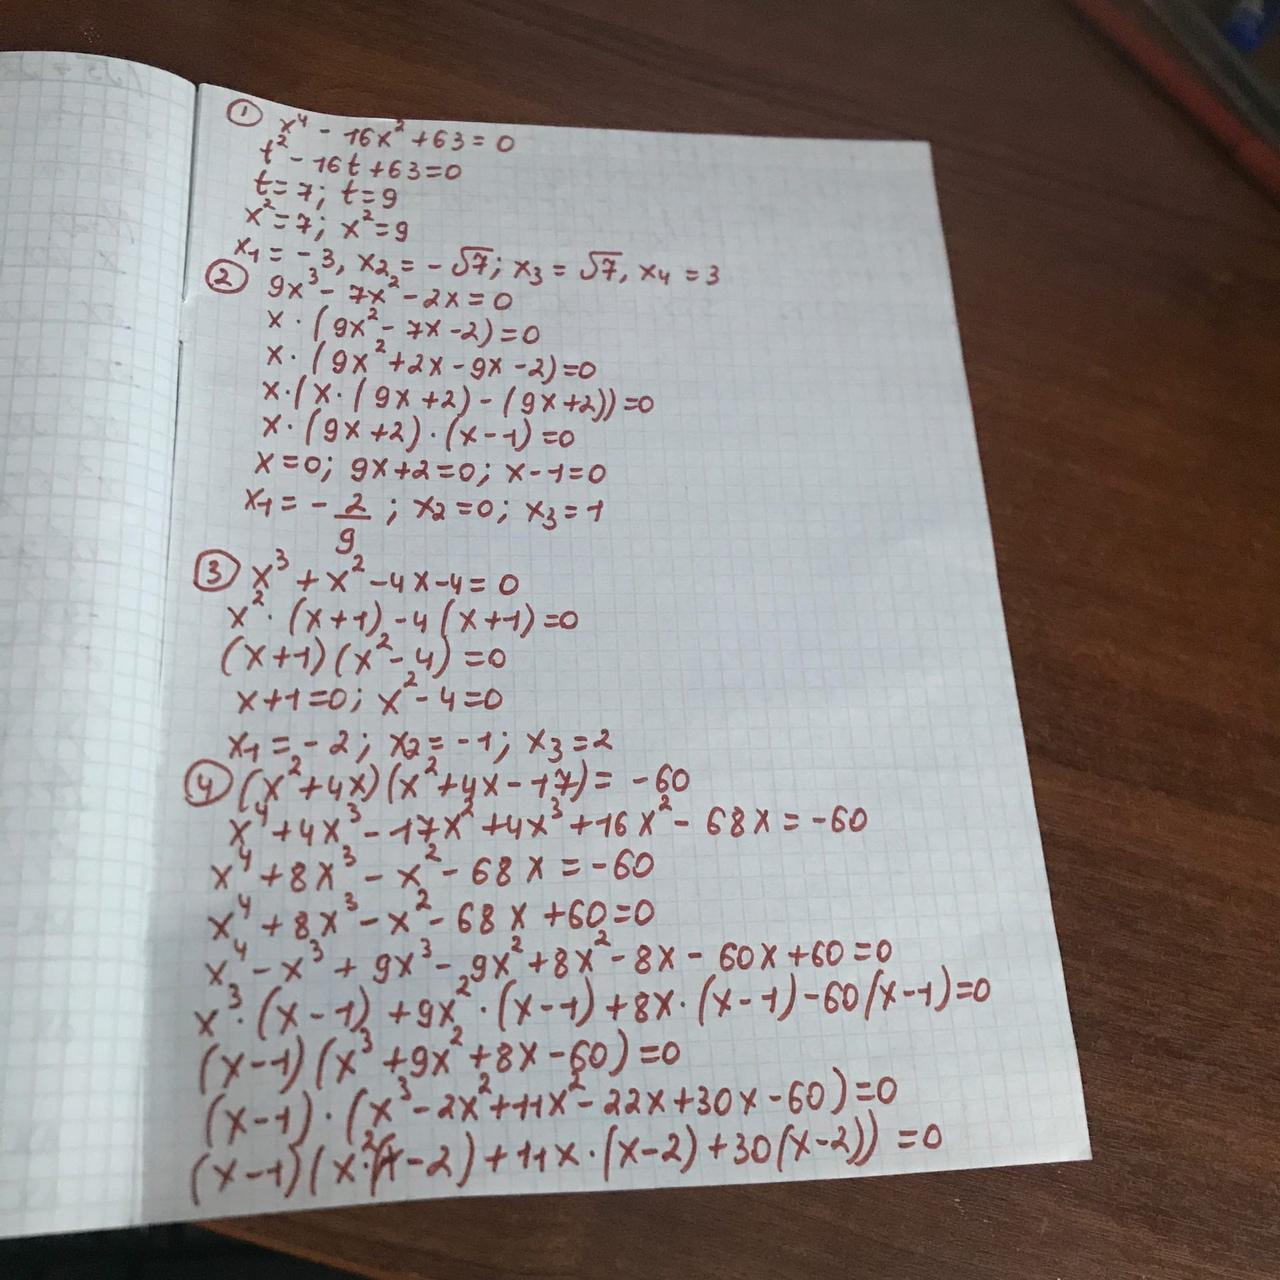 ① x⁴ - 16x² + 63 = 0
t² - 16t + 63 = 0
t = 7; t = 9
x² = 7; x² = 9
x₁ = - 3, x₂ = - √7; x₃ = √7, x₄ = 3
② 9x³ - 7x² - 2x = 0
x · (9x² - 7x - 2) = 0
x · (9x² + 2x - 9x - 2) = 0
x · (x · (9x + 2) - (9x + 2)) = 0
x · (9x + 2) · (x - 1) = 0
x = 0; 9x + 2 = 0; x - 1 = 0
x₁ = - 2/9; x₂ = 0; x₃ = 1
③ x³ + x² - 4x - 4 = 0
x² · (x + 1) - 4(x + 1) = 0
(x + 1)(x² - 4) = 0
x + 1 = 0; x² - 4 = 0
x₁ = - 2; x₂ = - 1; x₃ = 2
④ (x² + 4x)(x² + 4x - 17) = - 60
x⁴ + 4x³ - 17x² + 4x³ + 16x² - 68x = - 60
x⁴ + 8x³ - x² - 68x = - 60
x⁴ + 8x³ - x² - 68x + 60 = 0
x⁴ - x³ + 9x³ - 9x² + 8x² - 8x - 60x + 60 = 0
x³ · (x - 1) + 9x² · (x - 1) + 8x · (x - 1) - 60(x - 1) = 0
(x - 1)(x³ + 9x² + 8x - 60) = 0
(x - 1) · (x³ - 2x² + 11x² - 22x + 30x - 60) = 0
(x - 1)(x² · (x - 2) + 11x · (x - 2) + 30(x - 2)) = 0